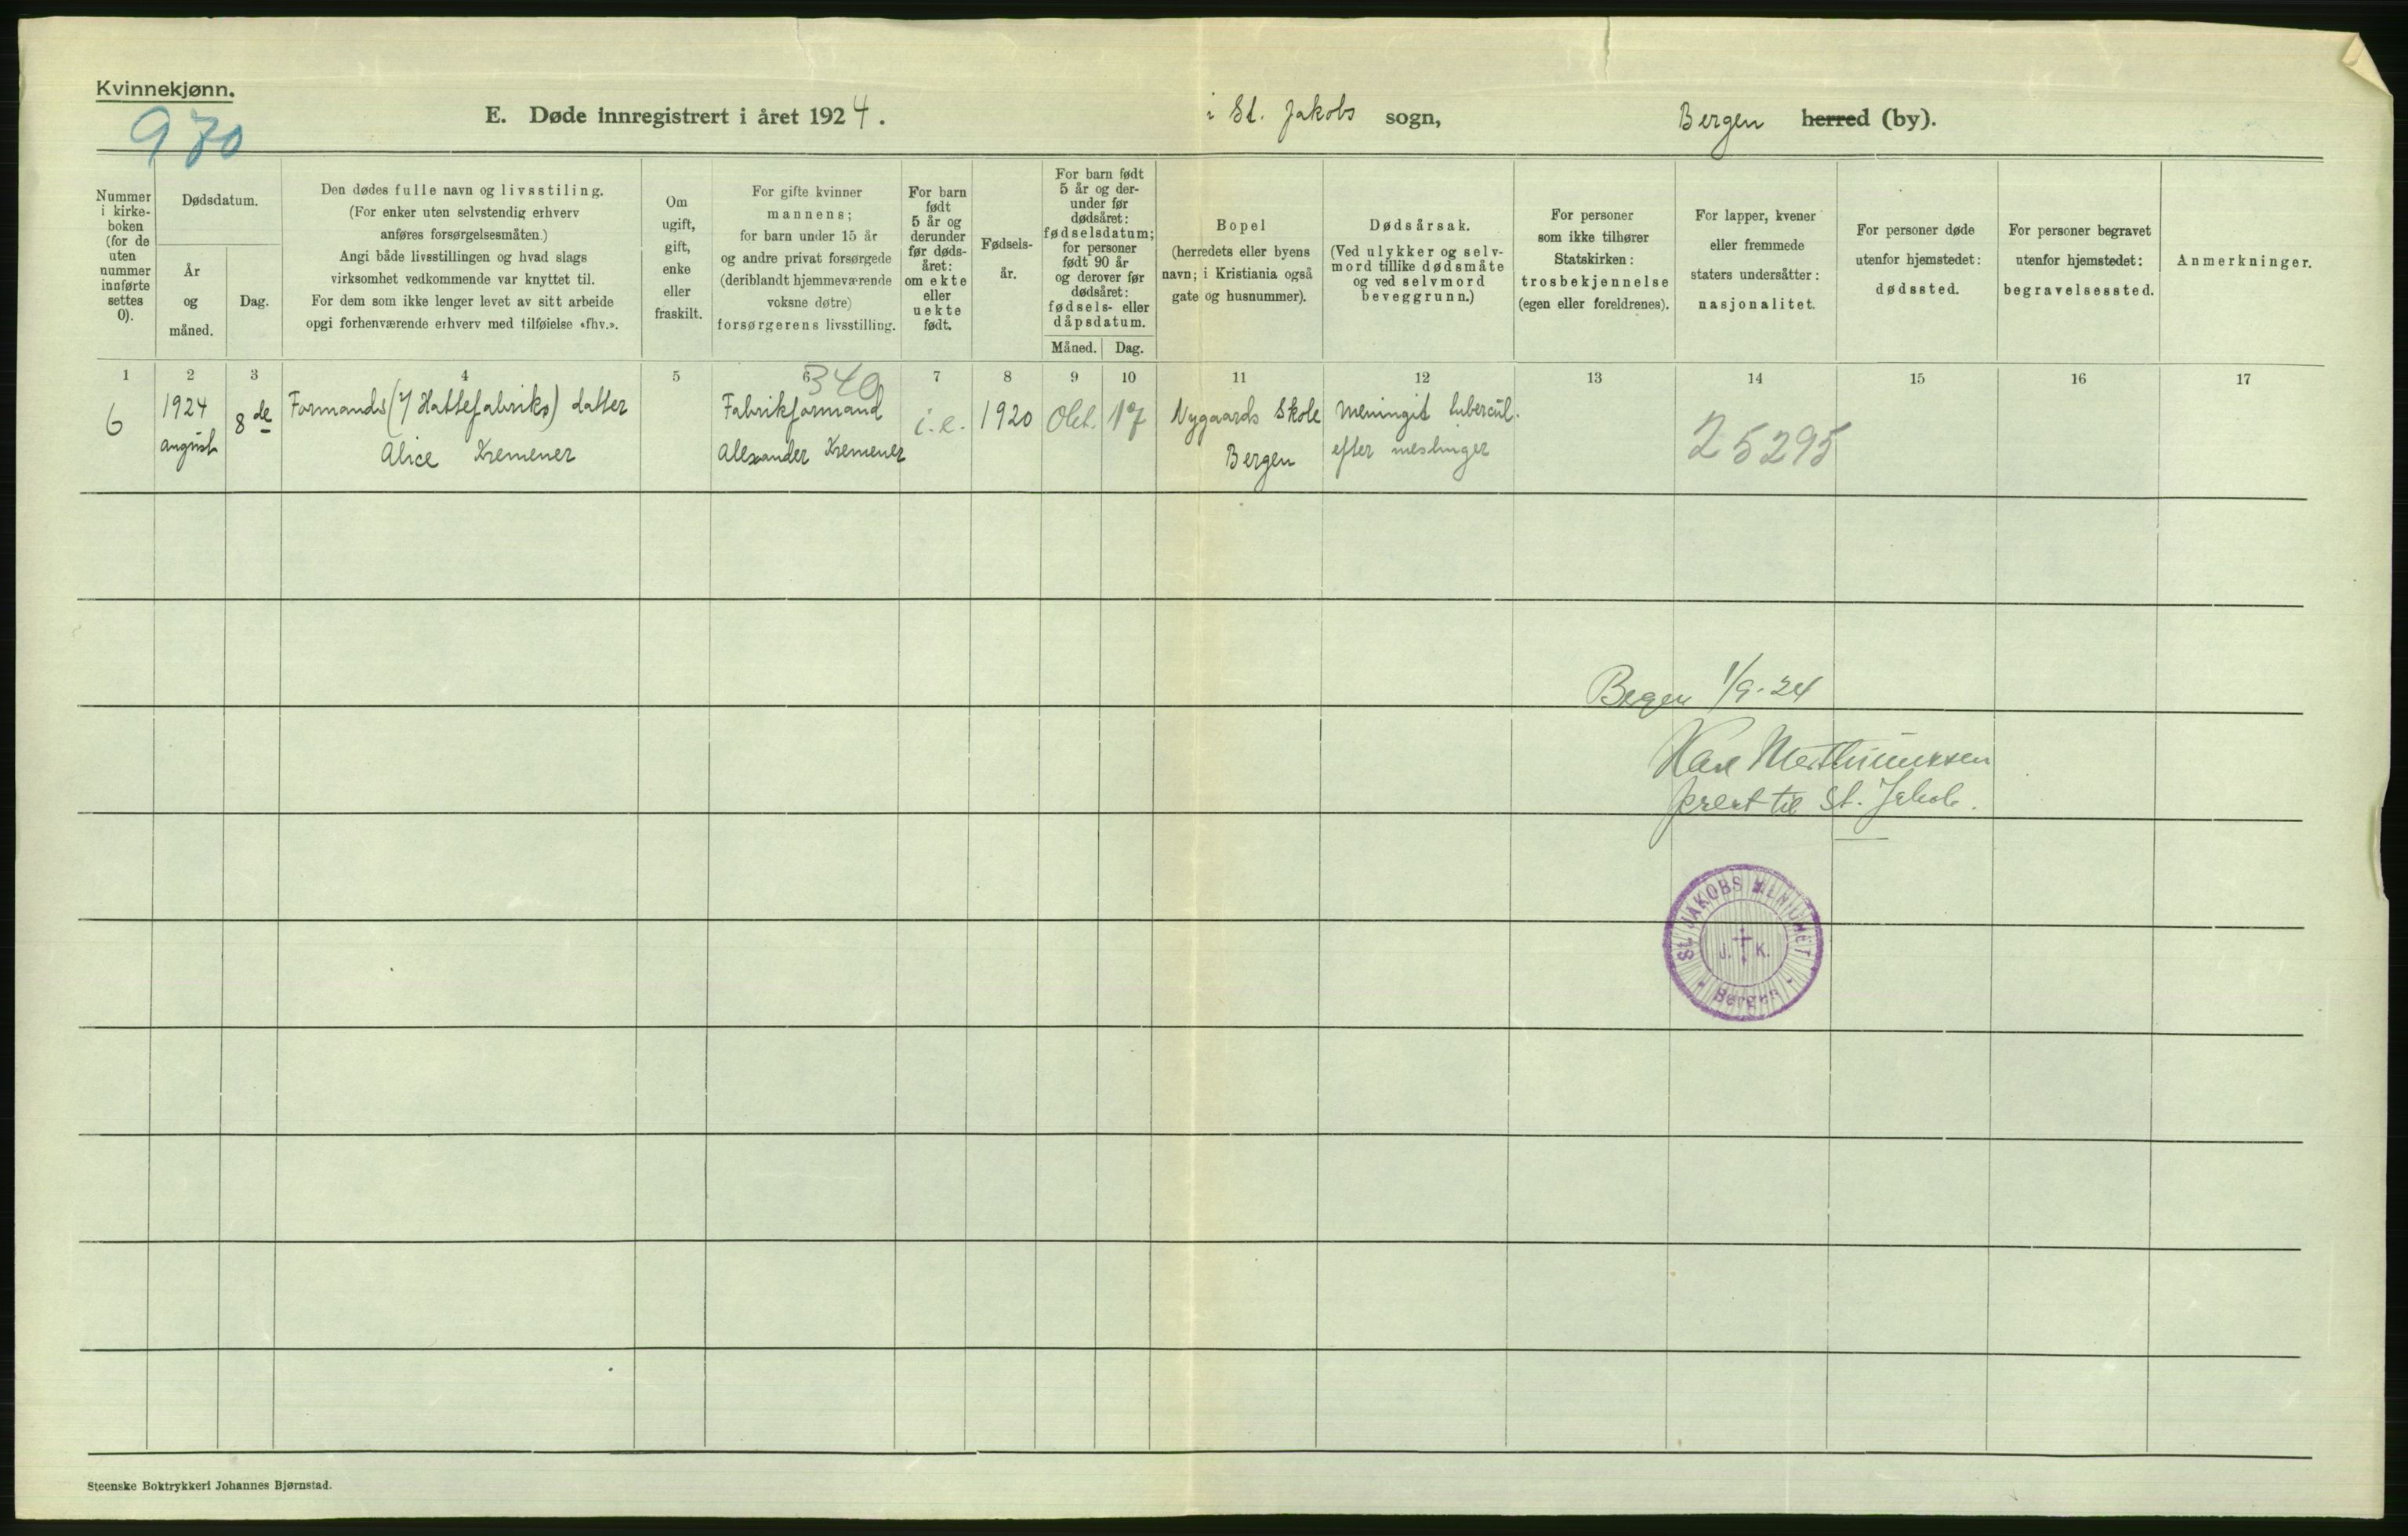 Kvinnekjønn.
970
E. Døde innregistrert i året 1924.
i St. Jakobs sogn,
Bergen herred (by).
Nummer
i kirke-
boken
(for de
uten
nummer
innførte
settes
0).
Dødsdatum.
År
og
måned.
Dag.
Den dødes fulle navn og livsstiling.
(For enker uten selvstendig erhverv
anføres forsørgelsesmåten.)
Angi både livsstillingen og hvad slags
virksomhet vedkommende var knyttet til.
For dem som ikke lenger levet av sitt arbeide
opgi forhenværende erhverv med tilføielse «fhv.».
Om
ugift,
gift,
enke
eller
fraskilt.
For gifte kvinner
mannens;
for barn under 15 år
og andre privat forsørgede
(deriblandt hjemmeværende
voksne døtre)
forsørgerens livsstilling.
For barn
født
5 år og
derunder
før døds-
året:
om ekte
eller
uekte
født.
Fødsels-
år.
For barn født
5 år og der-
under før
dødsåret:
fødselsdatum;
for personer
født 90 år
og derover før
dødsåret:
fødsels- eller
dåpsdatum.
Måned. Dag.
Bopel
(herredets eller byens
navn; i Kristiania også
gate og husnummer).
Dødsårsak.
(Ved ulykker og selv-
mord tillike dødsmåte
og ved selvmord
beveggrunn.)
For personer
som ikke tilhører
Statskirken:
trosbekjennelse
(egen eller foreldrenes).
For lapper, kvener
eller fremmede
staters undersåtter:
nasjonalitet.
For personer døde
utenfor hjemstedet:
dødssted.
For personer begravet
utenfor hjemstedet:
begravelsessted.
Anmerkninger.
1 2 3 4 5 6 7 8 9 10 11 12 13 14 15 16 17
340
6
1924
august
8de
Formands (v/ Hattefabriks) datter
Alice Kremener
Fabrikformand
Alexander Kremener
i.e.
1920
Okt.
17
Nygaards Skole
Bergen
Meningit tubercul.
efter meslinger
25295
Bergen 1/9-24
prest til St. Jakob.
ST. JAKOBS MENIGHET
J. K.
Bergen
Steenske Boktrykkeri Johannes Bjørnstad.